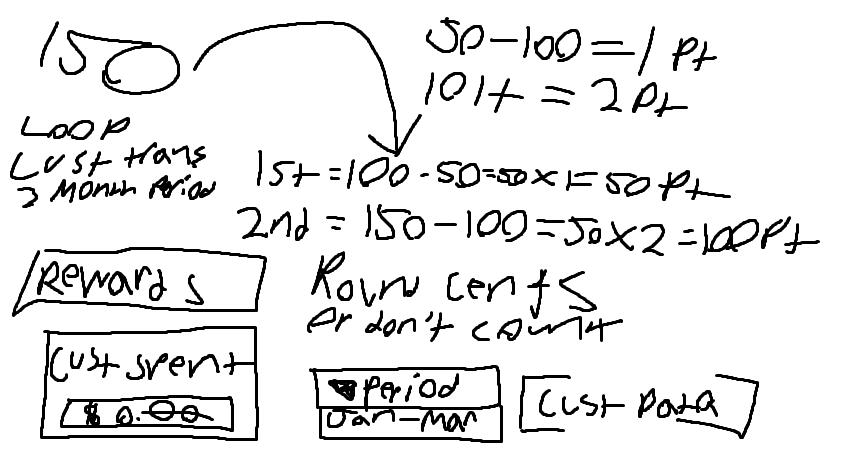 150
50-100=1 Pt
101+ = 2Pt
LOOP
Cust trans
3 Month Period
1st=100-50=50x1=50Pt
2nd = 150-100=50x2=100Pt
Rewards
Round cents
or don't count
Cust spent
$ 0.00
Period
Jan-Mar
Cust Data